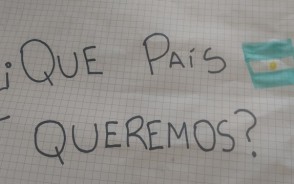 ¡QUE PAÍS
QUEREMOS?